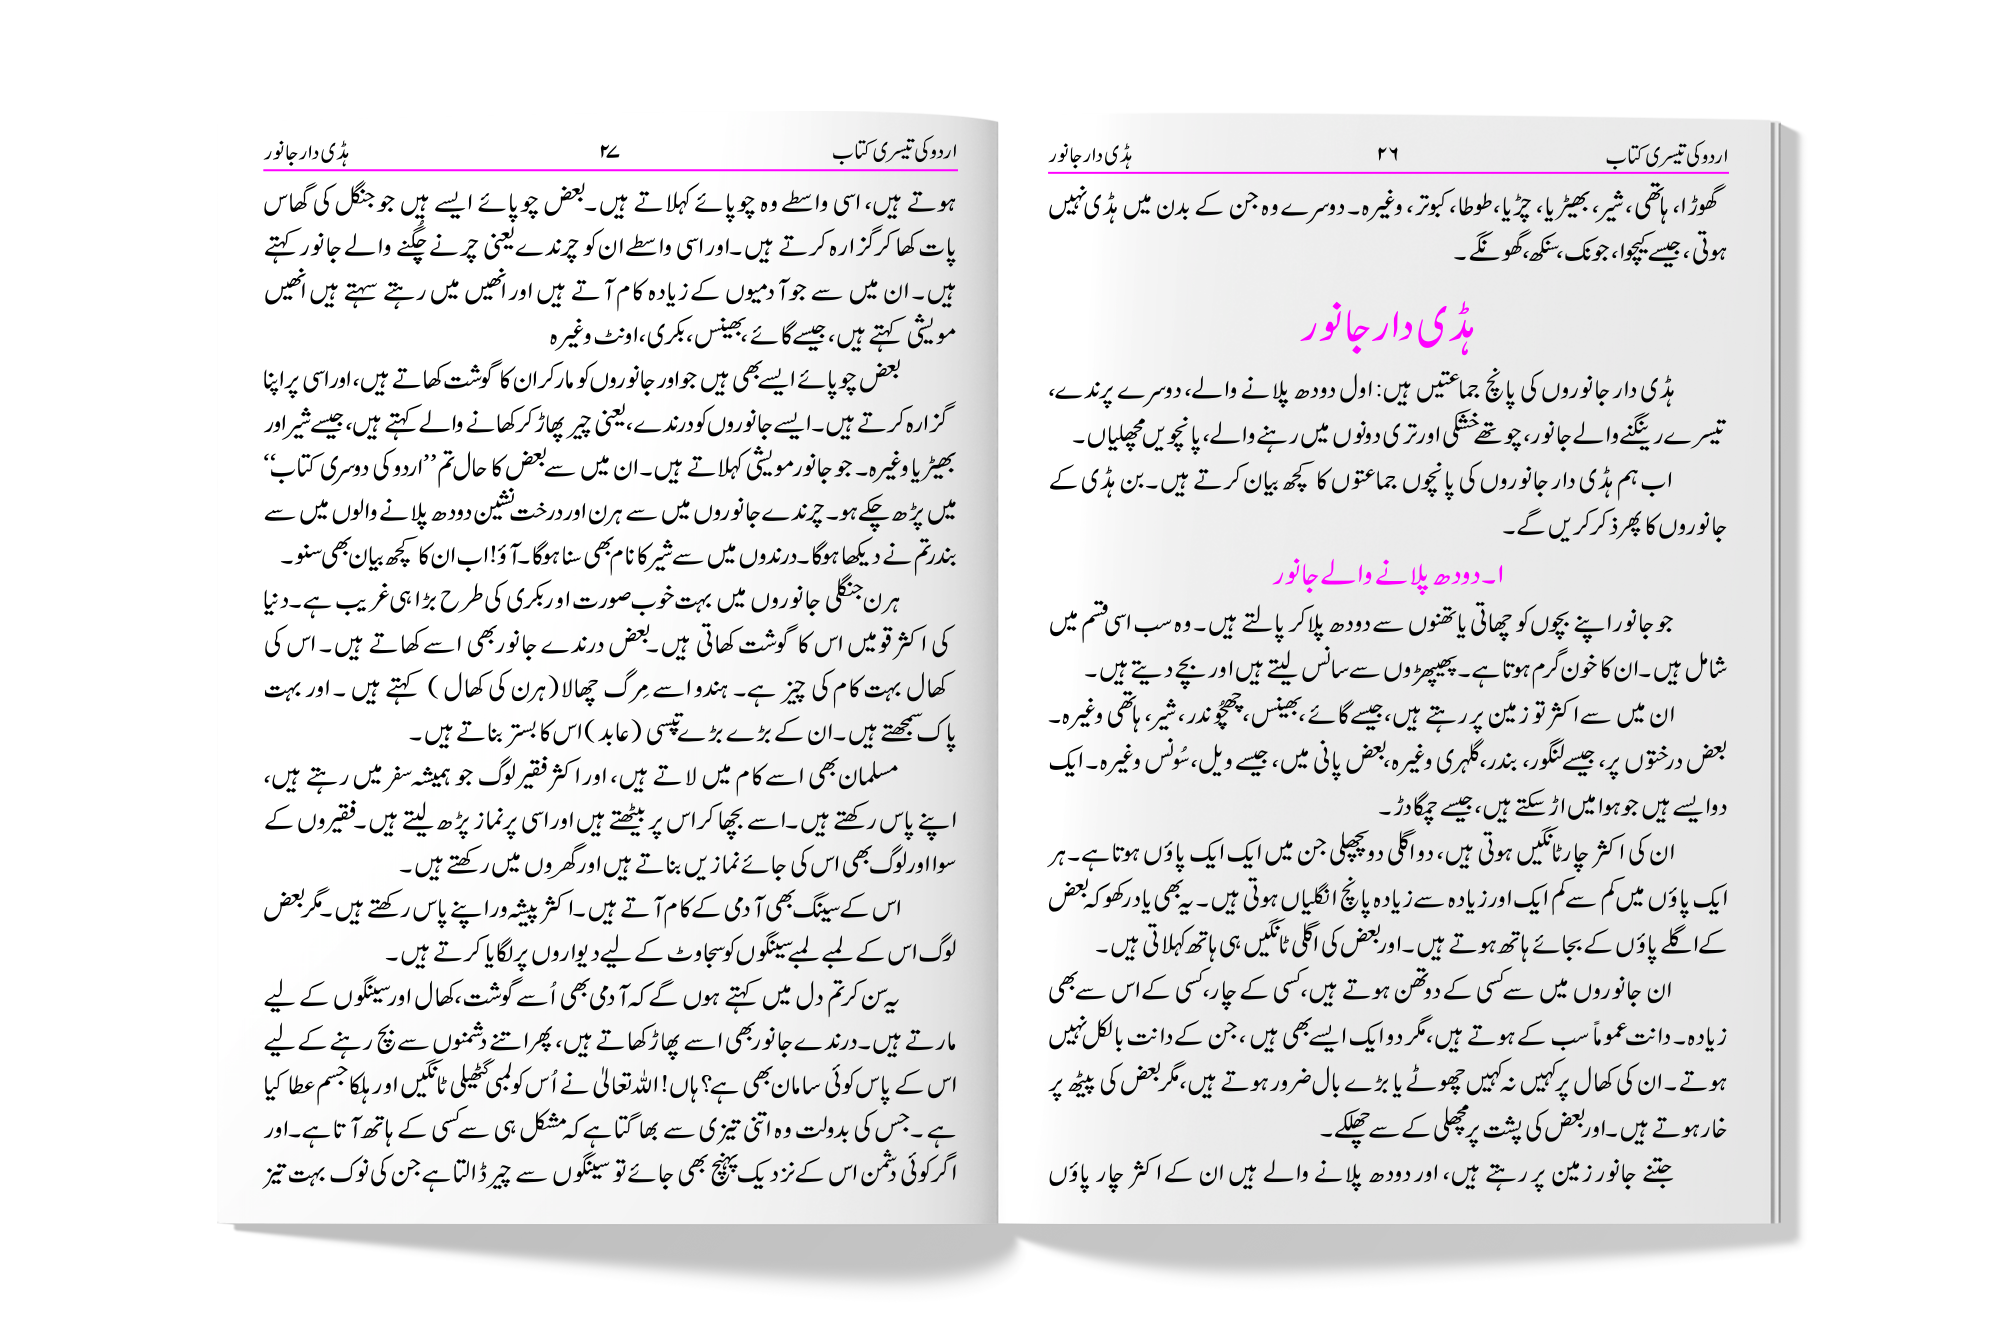 اردو کی تیسری کتاب ۲۶ ہڈی دار جانور
گھوڑا، ہاتھی، شیر، بھیڑیا، چڑیا، طوطا، کبوتر، وغیرہ۔ دوسرے وہ جن کے بدن میں ہڈی نہیں
ہوتی، جیسے کیچوا، جونک، سنکھ، گھونگے۔
ہڈی دار جانور
ہڈی دار جانوروں کی پانچ جماعتیں ہیں: اول دودھ پلانے والے، دوسرے پرندے،
تیسرے رینگنے والے جانور، چوتھے خشکی اور تری دونوں میں رہنے والے، پانچویں مچھلیاں۔
اب ہم ہڈی دار جانوروں کی پانچوں جماعتوں کا کچھ بیان کرتے ہیں۔ بن ہڈی کے
جانوروں کا پھر ذکر کریں گے۔
۱۔ دودھ پلانے والے جانور
جو جانور اپنے بچوں کو چھاتی یا تھنوں سے دودھ پلا کر پالتے ہیں۔ وہ سب اسی قسم میں
شامل ہیں۔ ان کا خون گرم ہوتا ہے۔ پھیپھڑوں سے سانس لیتے ہیں اور بچے دیتے ہیں۔
ان میں سے اکثر تو زمین پر رہتے ہیں، جیسے گائے، بھینس، چھچھوندر، شیر، ہاتھی وغیرہ۔
بعض درختوں پر، جیسے لنگور، بندر، گلہری وغیرہ، بعض پانی میں، جیسے ویل، سُونس وغیرہ۔ ایک
دو ایسے ہیں جو ہوا میں اڑ سکتے ہیں، جیسے چمگادڑ۔
ان کی اکثر چار ٹانگیں ہوتی ہیں، دو اگلی دو پچھلی جن میں ایک ایک پاؤں ہوتا ہے۔ ہر
ایک پاؤں میں کم سے کم ایک اور زیادہ سے زیادہ پانچ انگلیاں ہوتی ہیں۔ یہ بھی یاد رکھو کہ بعض
کے اگلے پاؤں کے بجائے ہاتھ ہوتے ہیں۔ اور بعض کی اگلی ٹانگیں ہی ہاتھ کہلاتی ہیں۔
ان جانوروں میں سے کسی کے دو تھن ہوتے ہیں، کسی کے چار، کسی کے اس سے بھی
زیادہ۔ دانت عموماً سب کے ہوتے ہیں، مگر دو ایک ایسے بھی ہیں، جن کے دانت بالکل نہیں
ہوتے۔ ان کی کھال پر کہیں نہ کہیں چھوٹے یا بڑے بال ضرور ہوتے ہیں، مگر بعض کی پیٹھ پر
خار ہوتے ہیں۔ اور بعض کی پشت پر مچھلی کے سے چھلکے۔
جتنے جانور زمین پر رہتے ہیں، اور دودھ پلانے والے ہیں ان کے اکثر چار پاؤں
اردو کی تیسری کتاب ۲۷ ہڈی دار جانور
ہوتے ہیں، اسی واسطے وہ چوپائے کہلاتے ہیں۔ بعض چوپائے ایسے ہیں جو جنگل کی گھاس
پات کھا کر گزارہ کرتے ہیں۔ اور اسی واسطے ان کو چرندے یعنی چرنے چُگنے والے جانور کہتے
ہیں۔ ان میں سے جو آدمیوں کے زیادہ کام آتے ہیں اور انھیں میں رہتے سہتے ہیں انھیں
مویشی کہتے ہیں، جیسے گائے، بھینس، بکری، اونٹ وغیرہ
بعض چوپائے ایسے بھی ہیں جو اور جانوروں کو مار کر ان کا گوشت کھاتے ہیں، اور اسی پر اپنا
گزارہ کرتے ہیں۔ ایسے جانوروں کو درندے، یعنی چیر پھاڑ کر کھانے والے کہتے ہیں، جیسے شیر اور
بھیڑیا وغیرہ۔ جو جانور مویشی کہلاتے ہیں۔ ان میں سے بعض کا حال تم ’’اردو کی دوسری کتاب‘‘
میں پڑھ چکے ہو۔ چرندے جانوروں میں سے ہرن اور درخت نشین دودھ پلانے والوں میں سے
بندر تم نے دیکھا ہوگا۔ درندوں میں سے شیر کا نام بھی سنا ہوگا۔ آؤ! اب ان کا کچھ بیان بھی سنو۔
ہرن جنگلی جانوروں میں بہت خوب صورت اور بکری کی طرح بڑا ہی غریب ہے۔ دنیا
کی اکثر قومیں اس کا گوشت کھاتی ہیں۔ بعض درندے جانور بھی اسے کھاتے ہیں۔ اس کی
کھال بہت کام کی چیز ہے۔ ہندو اسے مِرگ چھالا (ہرن کی کھال) کہتے ہیں۔ اور بہت
پاک سمجھتے ہیں۔ ان کے بڑے بڑے تپسی (عابد) اس کا بستر بناتے ہیں۔
مسلمان بھی اسے کام میں لاتے ہیں، اور اکثر فقیر لوگ جو ہمیشہ سفر میں رہتے ہیں،
اپنے پاس رکھتے ہیں۔ اسے بچھا کر اس پر بیٹھتے ہیں اور اسی پر نماز پڑھ لیتے ہیں۔ فقیروں کے
سوا اور لوگ بھی اس کی جائے نمازیں بناتے ہیں اور گھروں میں رکھتے ہیں۔
اس کے سینگ بھی آدمی کے کام آتے ہیں۔ اکثر پیشہ ور اپنے پاس رکھتے ہیں۔ مگر بعض
لوگ اس کے لمبے لمبے سینگوں کو سجاوٹ کے لیے دیواروں پر لگایا کرتے ہیں۔
یہ سن کر تم دل میں کہتے ہوں گے کہ آدمی بھی اُسے گوشت، کھال اور سینگوں کے لیے
مارتے ہیں۔ درندے جانور بھی اسے پھاڑ کھاتے ہیں، پھر اتنے دشمنوں سے بچ رہنے کے لیے
اس کے پاس کوئی سامان بھی ہے؟ ہاں! اللہ تعالیٰ نے اُس کو لمبی گٹھیلی ٹانگیں اور ہلکا جسم عطا کیا
ہے۔ جس کی بدولت وہ اتنی تیزی سے بھاگتا ہے کہ مشکل ہی سے کسی کے ہاتھ آتا ہے۔ اور
اگر کوئی دشمن اس کے نزدیک پہنچ بھی جائے تو سینگوں سے چیر ڈالتا ہے جن کی نوک بہت تیز